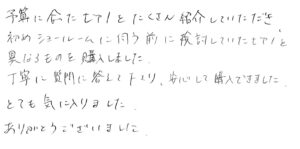 予算に合ったピアノをたくさん紹介していただき
初めショールームに伺う前に検討していたピアノと
異なるものを購入しました。
丁寧に質問に答えて下さり、安心して購入できました。
とても気に入りました。
ありがとうございました。